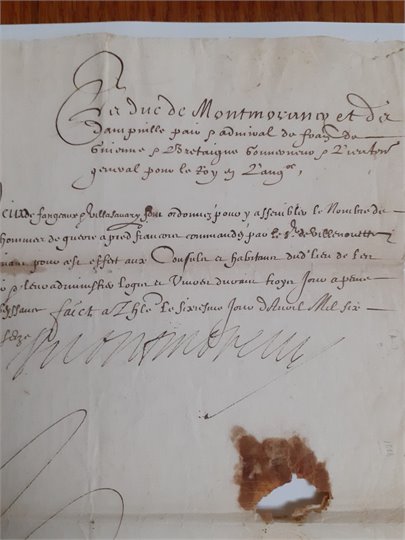 Le duc de Montmorancy et de
Dampville pair & admiral de france de
Guienne & Bretaigne Gouverneur & Lieuten
general pour le Roy en Lang
de fanjeaux & villasavary sont ordonnez pour y assembler le Nombre de
hommes de guerre a pied francois commandez par le Sr de Villenouvette
pour cest effect aux Consulz et habitans dud lieu de les
& leur administrer logis et vivres durant troys jours a peyne
faict a le sixiesme jour d'Avril Mil six
seize
Montmorency